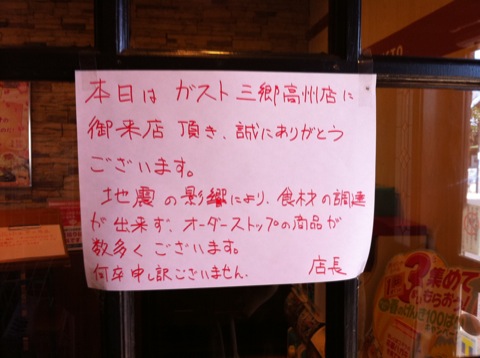 本日は ガスト 三郷高州店に
御来店 頂き、誠にありがとう
ございます。
地震の影響により、食材の調達
が出来ず、オーダーストップの商品が
数多くございます。
何卒申し訳ございません。
店長
集めて
もらおう!